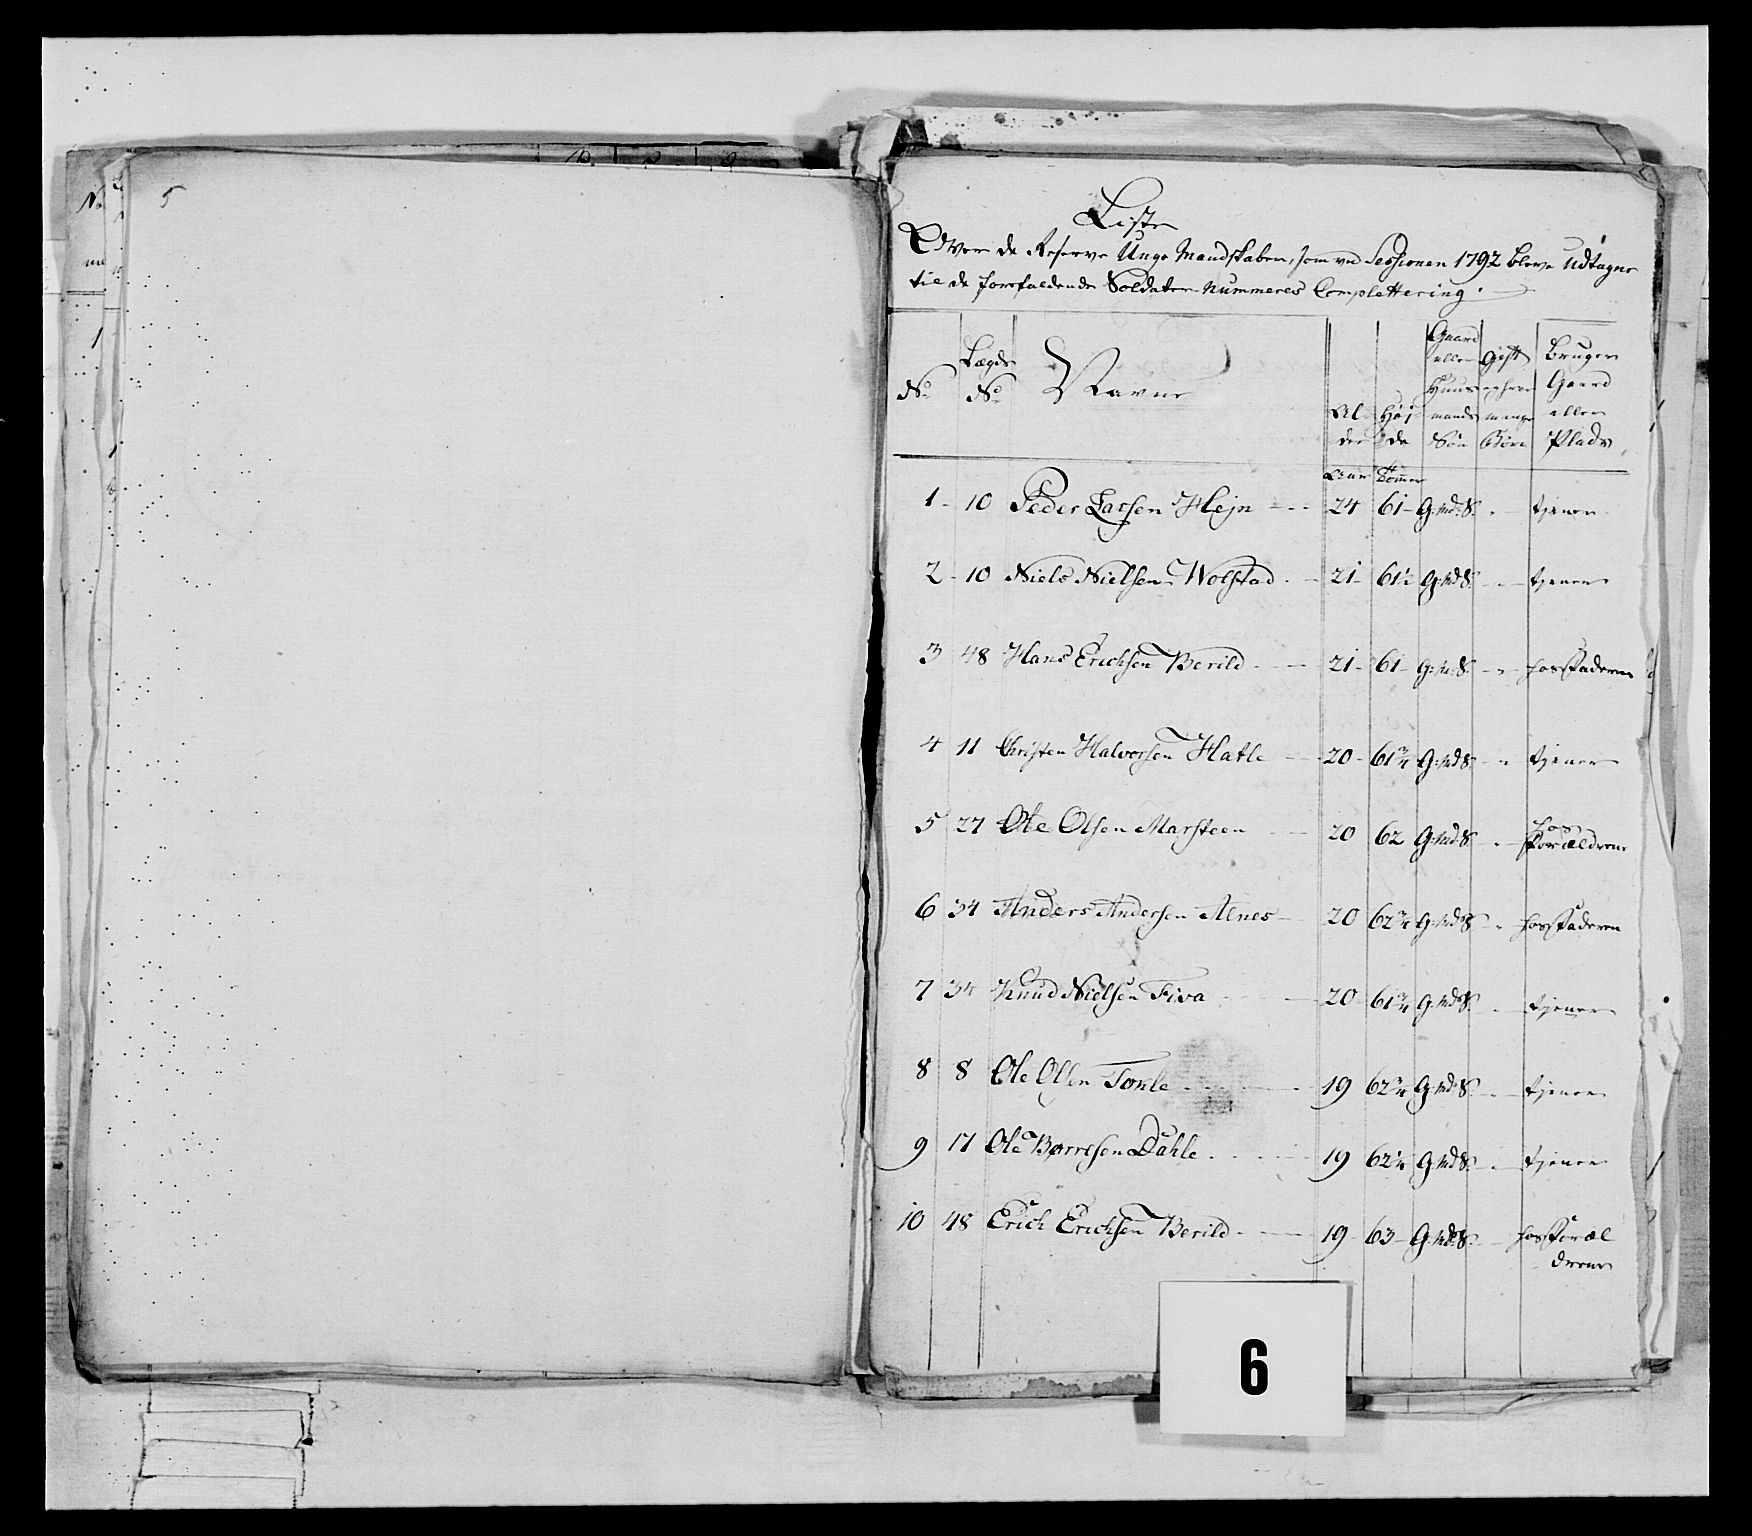 5
Liste
Over de Reserve Unge Mandskaber, som ved Sessionen 1792 bleve udtagne
til de forefaldende Soldater Nummeres Complettering.
No. Lægds No. Navne Alder Høide Gaard eller Huusmands Søn Gift og hvor mange Børn Bruger Gaard eller Plads
Aar Tommer
1 - 10 Peder Larsen Hejn 24 61 - G: md: S. " tjener
2 - 10 Niels Nielsen Wolstad 21 - 61½ G: md S. " tjener
3 48 Hans Erichsen Berild 21 - 61 - G: M: S. " hos Faderen
4 11 Christen Halvorsen Hatle 20 - 61¾ G: md S. " tjener
5 27 Ole Olsen Marsteen 20 62 G: md S. " hos Forældrene
6 34 Anders Andersen Alnes 20 62¾ G: md S " hos Faderen
7 34 Knud Nielsen Fiva 20 - 61¾ G: md S. " tjener
8 8 Ole Olsen Tonle 19 62¾ G: md S. " tjener
9 17 Ole Børresen Dahle 19 62¼ G: md S. " tjener
10 48 Erich Erichsen Berild 19 63 - G: md: S. hos Foræl
drene
6